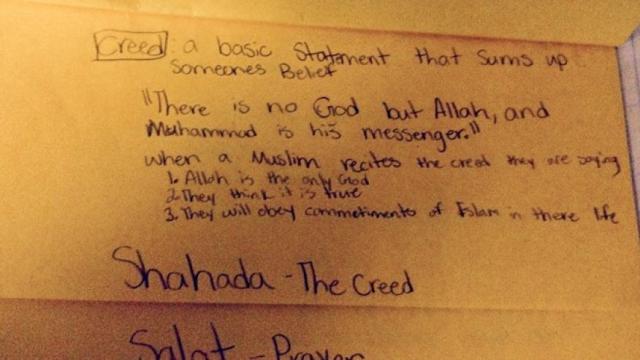 Creed: a basic Statment that sums up
someones Belief
"There is no God but Allah, and
Muhammad is his messenger."
when a Muslim recites the creed they are saying
1. Allah is the only God
2. They think it is true
3. They will obey commetiments of Islam in there life
Shahada - The Creed
Salat - Prayer